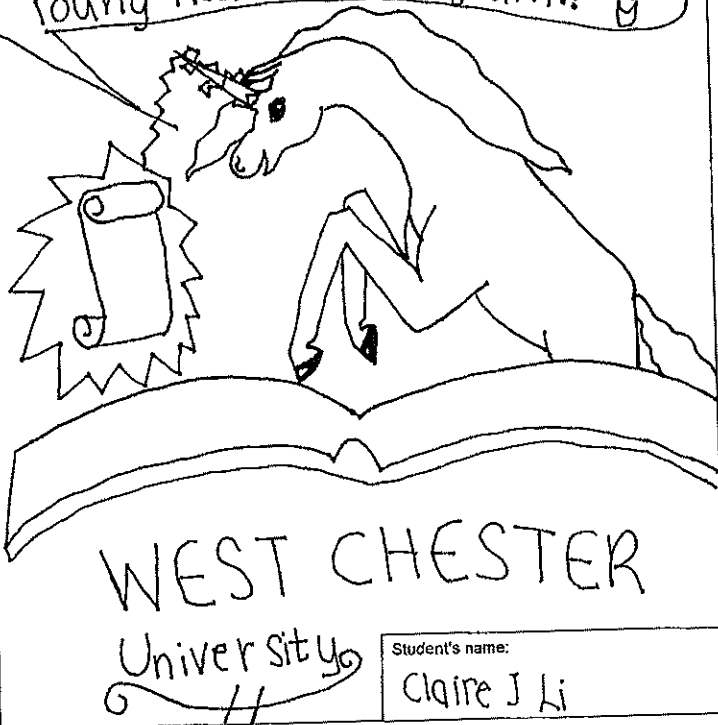 Young
WEST CHESTER
University
Student's name:
Claire J Li